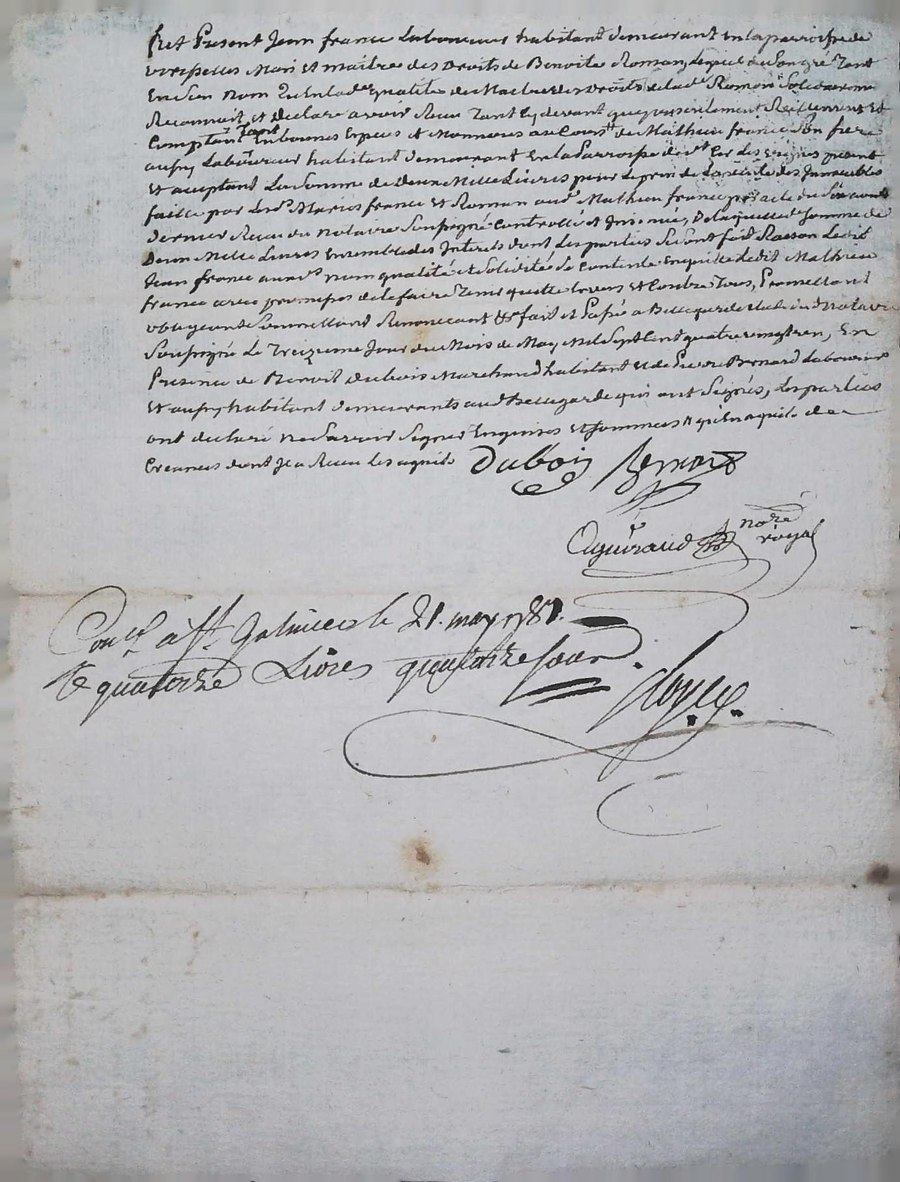 fut Présent Jean france Laboureur habitant demeurant en la parroisse de
Mari et maitre des Droits de Benoite Roman, lequel de son gré tant
En Son Nom qu'En lad. qualité de Maitre des Droits de lad. Roman Solidairement
Reconnait et declare avoir Reçu tant cy devant que presentement Réellement Et
Comptant En bonnes Especes et Monnoies au Cours de Mathieu france Son frere
aussy Laboureur habitant demeurant En la Parroisse de présent
Et aceptant La Somme de deux Mille Livres pour Le prix de La vente des Immeubles
faitte par Lesd. Mariés france et Roman aud. Mathieu france par acte du
dernier Reçu du Notaire Soussigné Controllé et Insinué, De laquelle Somme de
Deux Mille Livres Ensemble des Interets dont Les parties Se sont fait Raison Ledit
Jean france auxd. nom qualité et Solidité Se Contente En quitte Ledit Mathieu
france avec promesse de le faire Tenir quitte Envers Et Contre Tous, Promettant
obligeant Soumettant Renonçant &c fait et Passé a Bellegarde Etude du Notaire
Soussigné Le Treizieme Jour du Mois de May Mil Sept Cent quatre vingt En
Presence de Benoit dubois Marchand habitant et de Pierre Bernard Laboureur
Et aussy habitant demeurants aud. Bellegarde qui ont Signés, Les parties
ont declaré ne Savoir Signer Enquises Et Sommées
Creances dont Jean Reçu les aquits Dubois Bernard
Aguiraud nore
royal
Conlé a St Galmier le 21. may 1781.
R quatorze Livres quatorze sous.